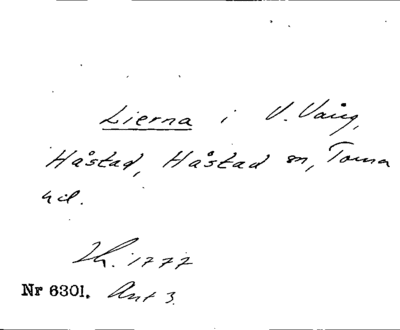 Lierna i V. Vång,
Håstad, Håstad sn, Torna
hd.
Lh. 1777
Nr 6301. Akt 3.